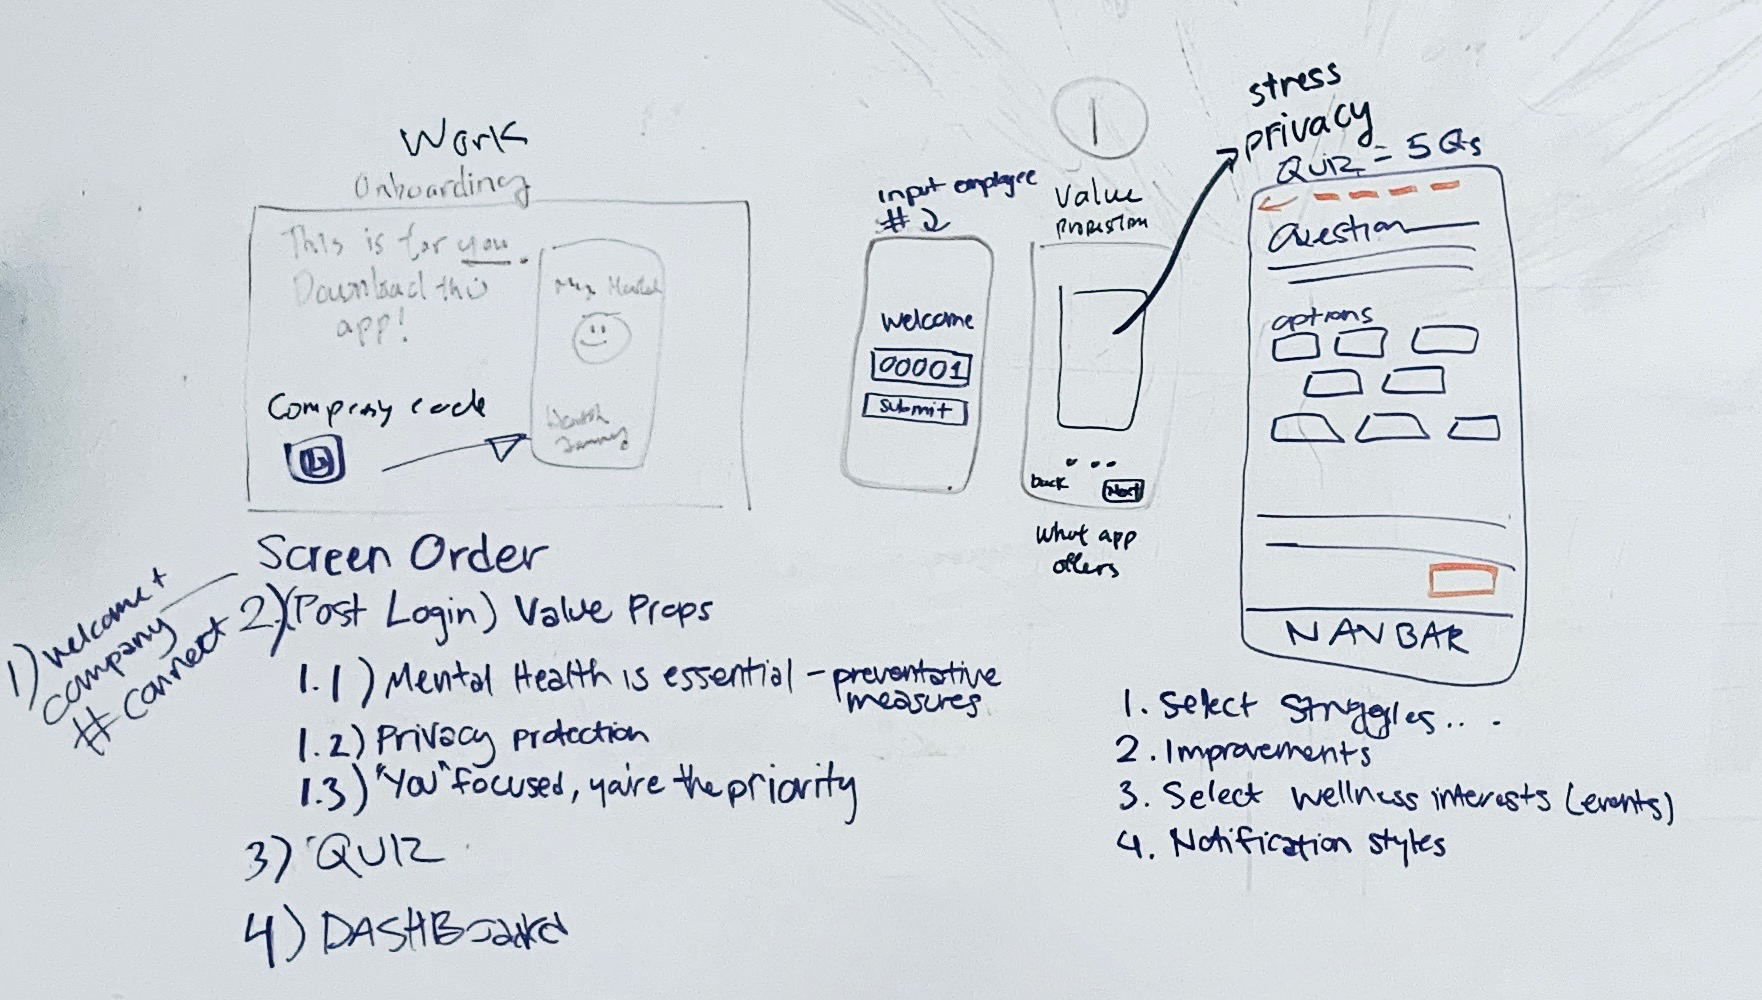 Work
Onboarding
This is for you.
Download this
app!
Company code
input employee
#
Welcome
00001
Submit
1
Value
back
Next
What app
offers
stress
privacy
QUIZ = 5 Qs
Question
options
NAVBAR
1. Select Struggles...
2. Improvements
3. Select wellness interests (events)
4. Notification styles
Screen Order
1) welcome +
company
# connect
2) (Post Login) Value Props
1.1) Mental Health is essential - preventative
measures
1.2) Privacy protection
1.3) "You" focused, you're the priority
3) QUIZ
4) DASHBoard